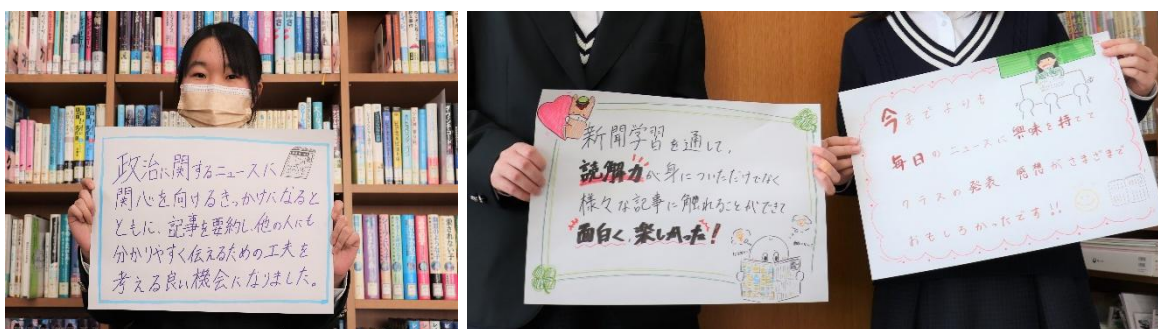 政治に関するニュースに
関心を向けるきっかけになると
ともに、記事を要約し、他の人にも
分かりやすく伝えるための工夫を
考える良い機会になりました。
新聞学習を通して、
読解力が身についただけでなく
様々な記事に触れることができて
面白く、楽しかった!
今までよりも
毎日のニュースに興味を持てて
クラスの発表 感想がさまざまで
おもしろかったです!!